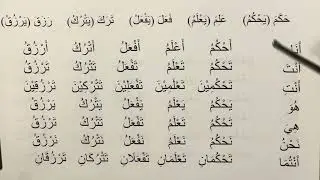 حَكَمَ (يَحْكُمُ) عَلِمَ (يَعْلَمُ) فَعَلَ (يَفْعَلُ) تَرَكَ (يَتْرُكُ) رَزَقَ (يَرْزُقُ)
أَنَا أَحْكُمُ أَعْلَمُ أَفْعَلُ أَتْرُكُ أَرْزُقُ
أَنْتَ تَحْكُمُ تَعْلَمُ تَفْعَلُ تَتْرُكُ تَرْزُقُ
أَنْتِ تَحْكُمِيْنَ تَعْلَمِيْنَ تَفْعَلِيْنَ تَتْرُكِيْنَ تَرْزُقِيْنَ
هُوَ يَحْكُمُ يَعْلَمُ يَفْعَلُ يَتْرُكُ يَرْزُقُ
هِيَ تَحْكُمُ تَعْلَمُ تَفْعَلُ تَتْرُكُ تَرْزُقُ
نَحْنُ نَحْكُمُ نَعْلَمُ نَفْعَلُ نَتْرُكُ نَرْزُقُ
أَنْتُمَا تَحْكُمَانِ تَعْلَمَانِ تَفْعَلَانِ تَتْرُكَانِ تَرْزُقَانِ